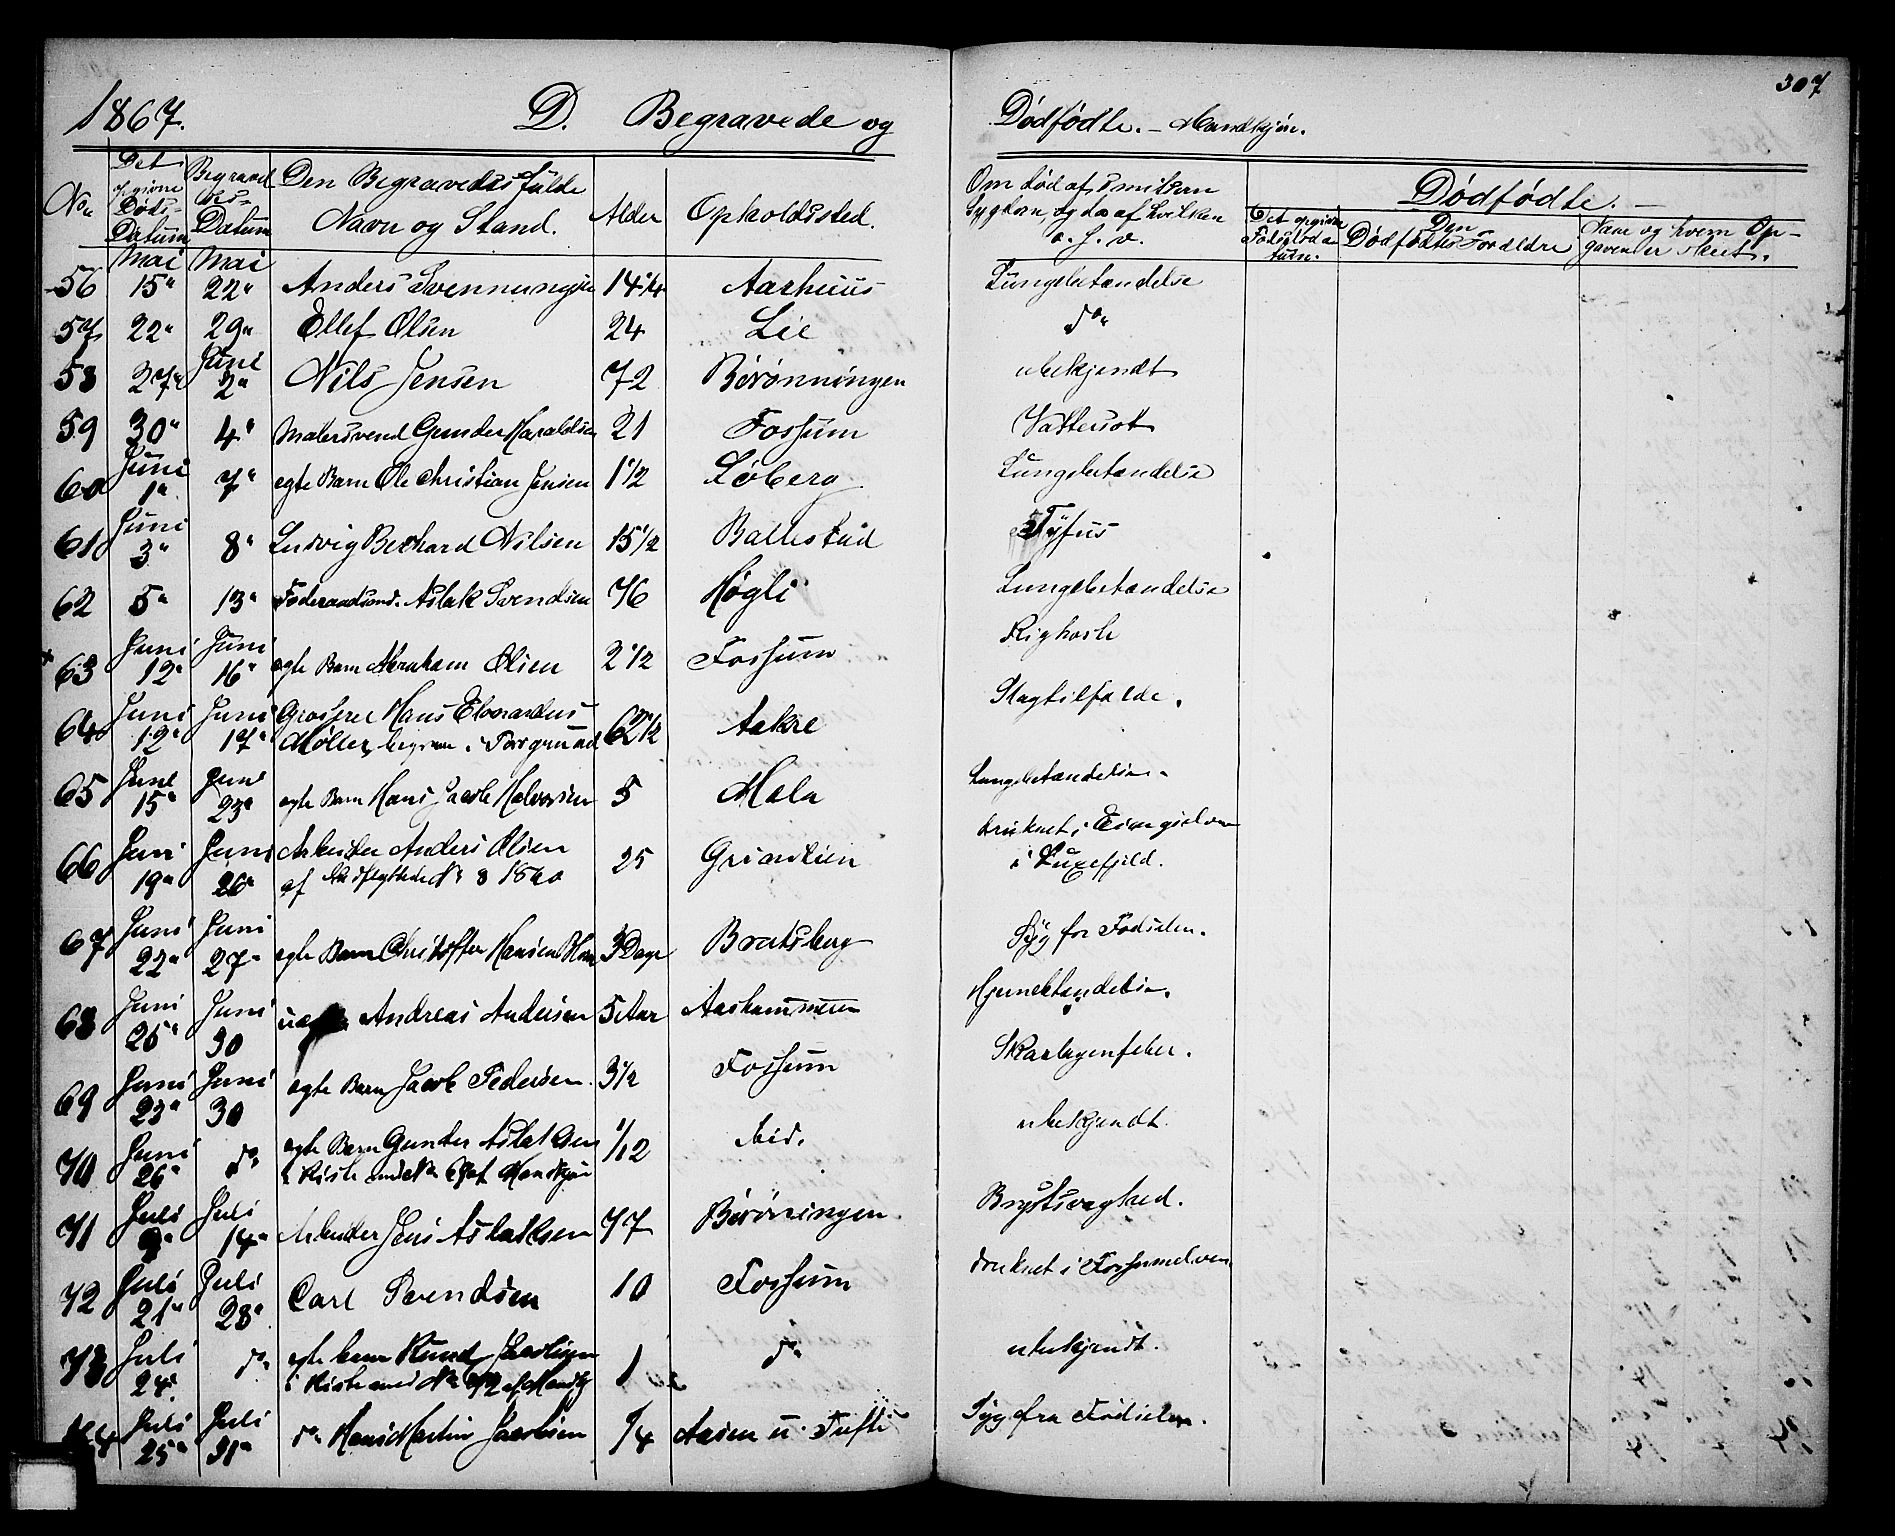 307
1867. D. Begravede og Dødfødte. – Mandkjøn.
No. Det opgivne Døds-Datum Begravelses-Datum Den Begravedes fulde Navn og Stand. Alder Opholdssted. Om død af smitsom Sygdom, og da af hvilken o. s. v. Dødfødte. – Det opgivne Fødselsdatum. Den Dødfødtes Forældre Naar og hvem Opgaven er skeet.
56 Mai 15" Mai 22" Anders Svennungsen 14 1/4 Aarhuus Lungebetændelse
57 22" 29" Ellef Olsen 24 Lie do
58 27" Juni 2" Nils Jensen 72 Børønningen ubekjendt
59 30" 4" Malersvend Gunder Haraldsen 21 Fossum Vattersot
60 Juni 1" 7" egte Barn Ole Christian Jensen 1 1/2 Løberg Lungebetændelse
61 Juni 3" 8" Ludvig Berhard Nilsen 15 1/2 Ballestad Tyfus
62 5" 13" Føderaadsmd. Aslak Svendsen 76 Høgli Lungebetændelse
63 Juni 12" Juni 16" egte Barn Abraham Olsen 2 1/2 Fossum Kighoste
64 Juni 12" Juni 17" Grosserer Hans
Møller, begravn. i Porsgrund 62 1/2 Aakre Slagtilfælde.
65 Juni 15" Juni 23" egte Barn Hans Jacob Halvorsen 5 Mæla Lungebetændelse.
66 Juni 19" Juni 26" Arbeider Anders Olsen 25 druknet i
af No 8 1840 i Luxefjeld.
67 Juni 22" Juni 27" egte Barn Christoffer Hansen 3 Dage Bratsberg Syg fra Fødselen.
68 Juni 25" Juni 30 Andreas Andersen 5 Aar Aashammeren Hjernebetændelse.
69 Juni 23" Juni 30 egte Barn Jacob Pedersen. 3 1/2 Fossum Skarlagenfeber.
70 Juni 26" do egte Barn Gunder Aslaksen 1/12 ibid. ubekjendt.
i Kiste med No 69 af Mandkjøn
71 Juli 9" Juli 14" Arbeider Jens Aslaksen 77 Børøningen Brystsvaghed.
72 Juli 21" Juli 28" Carl Svendsen 10 Fossum druknet i Fossumelven.
73 Juli 24" do egte barn Knud Jacobsen 1 do ubekjendt.
i Kiste med No 72 af Mandkj
74 Juli 25" Juli 31" do Hans Martin Jacobsen 1/4 Aasen u. Tufte Syg fra Fødselen.